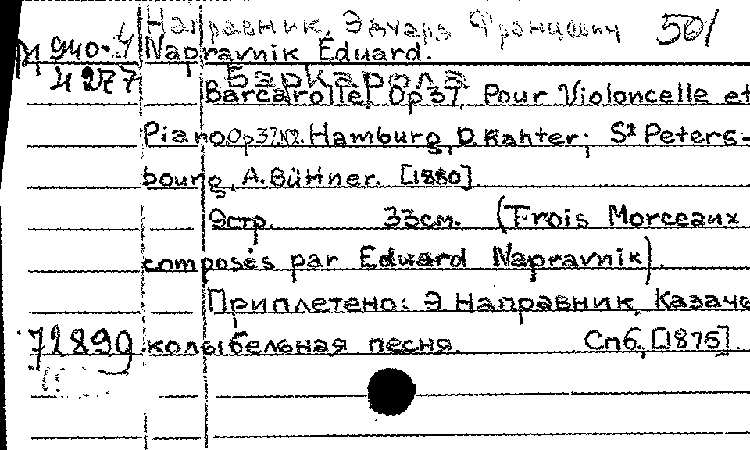 Направник, Эдуард Францович 501
М 940-4 Napravnik Eduard.
4277 Баркарола
Barcarolle, Op 37, Pour Violoncelle et
Piano Op 37, №2. Hamburg, D. Rahter; St Peters-
bourg, A. Büttner. [1880]
9стр. 33см. (Trois Morceaux
composés par Eduard Napravnik).
Приплетено: Э. Направник, Казачья
72890 колыбельная песня. Спб, [1875].